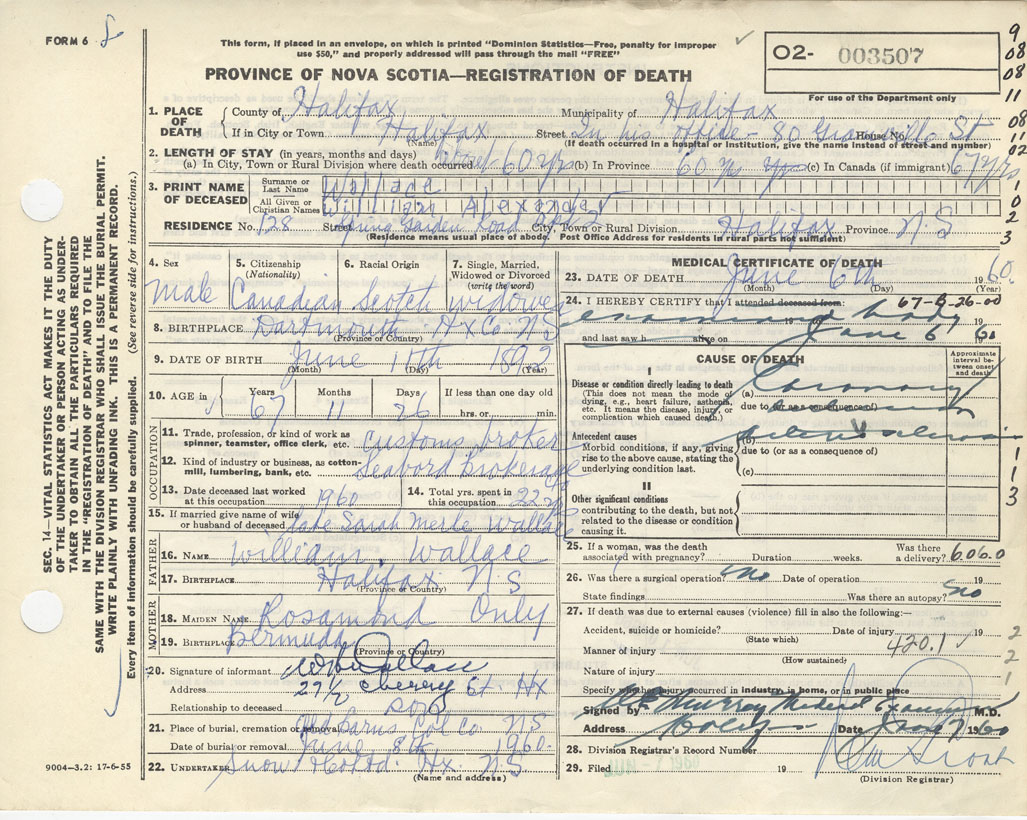 FORM 6
This form, if placed in an envelope, on which is printed "Dominion Statistics—Free, penalty for improper
use $50," and properly addressed will pass through the mail "FREE"
PROVINCE OF NOVA SCOTIA—REGISTRATION OF DEATH
O2- 003507
For use of the Department only
9
08
08
11
08
11
02
1
0
2
3
SEC. 14—VITAL STATISTICS ACT MAKES IT THE DUTY
OF THE UNDERTAKER OR PERSON ACTING AS UNDER-
TAKER TO OBTAIN ALL THE PARTICULARS REQUIRED
IN THE "REGISTRATION OF DEATH" AND TO FILE THE
SAME WITH THE DIVISION REGISTRAR WHO SHALL ISSUE THE BURIAL PERMIT.
WRITE PLAINLY WITH UNFADING INK. THIS IS A PERMANENT RECORD.
Every item of information should be carefully supplied. (See reverse side for instructions.)
1. PLACE OF DEATH County of Halifax Municipality of Halifax
If in City or Town Halifax (Name) Street In his office - 80 Granville St House No.
(If death occurred in a hospital or institution, give the name instead of street and number)
2. LENGTH OF STAY (in years, months and days)
(a) In City, Town or Rural Division where death occurred 60 yrs (b) In Province 60 yrs (c) In Canada (if immigrant) 67 yrs
3. PRINT NAME OF DECEASED Surname or Last Name Wallace
All Given or Christian Names William Alexander
RESIDENCE No. 128 Street Spring Garden Road City, Town or Rural Division Halifax Province N.S
(Residence means usual place of abode. Post Office Address for residents in rural parts not sufficient)
4. Sex 5. Citizenship (Nationality) 6. Racial Origin 7. Single, Married, Widowed or Divorced (write the word)
Male Canadian Scotch widower
8. BIRTHPLACE Dartmouth Hx Co. N S (Province or Country)
9. DATE OF BIRTH June 11th 1892 (Month) (Day) (Year)
10. AGE in Years 67 Months 11 Days 26 If less than one day hrs. or min.
OCCUPATION
11. Trade, profession, or kind of work as spinner, teamster, office clerk, etc. Customs broker
12. Kind of industry or business, as cotton-mill, lumbering, bank, etc. Seabord Brokerage
13. Date deceased last worked at this occupation 1960 14. Total yrs. spent in this occupation 22 yrs
15. If married give name of wife or husband of deceased late Sarah Merle Wallace
FATHER
16. NAME William Wallace
17. BIRTHPLACE Halifax N S (Province or Country)
MOTHER
18. MAIDEN NAME Rosamond Only
19. BIRTHPLACE Bermuda (Province or Country)
20. Signature of informant Wallace
Address 27½ Cherry St. Hx
Relationship to deceased son
21. Place of burial, cremation or removal Old Barns Col Co. N S
Date of burial or removal June 8th 1960.
22. UNDERTAKER Snow & Co Ltd. Hx N.S (Name and address)
9004—3.2: 17-6-55
MEDICAL CERTIFICATE OF DEATH
23. DATE OF DEATH June 6th 1960. (Month) (Day) (Year)
24. I HEREBY CERTIFY that I attended deceased from: 67-8-26-00
examined body 19 19
and last saw h alive on June 6 60
CAUSE OF DEATH
Approximate interval between onset and death
I
Disease or condition directly leading to death
(This does not mean the mode of dying, e.g., heart failure, asthenia, etc. It means the disease, injury, or complication which caused death.)
(a) Coronary
due to (or as a consequence of)
Antecedent causes
Morbid conditions, if any, giving rise to the above cause, stating the underlying condition last.
(b)
due to (or as a consequence of)
(c)
II
Other significant conditions
contributing to the death, but not related to the disease or condition causing it.
1
1
3
25. If a woman, was the death associated with pregnancy? Duration weeks. Was there a delivery? 606.0
26. Was there a surgical operation? no Date of operation 19
State findings Was there an autopsy? no
27. If death was due to external causes (violence) fill in also the following:—
Accident, suicide or homicide? (State which) Date of injury 19
Manner of injury (How sustained) 420.1
Nature of injury
2
2
1
Specify whether injury occurred in industry, in home, or in public place
Signed by Medical Examiner M.D.
Address Date 1960
28. Division Registrar's Record Number
29. Filed JUN - 7 1960 19 (Division Registrar)